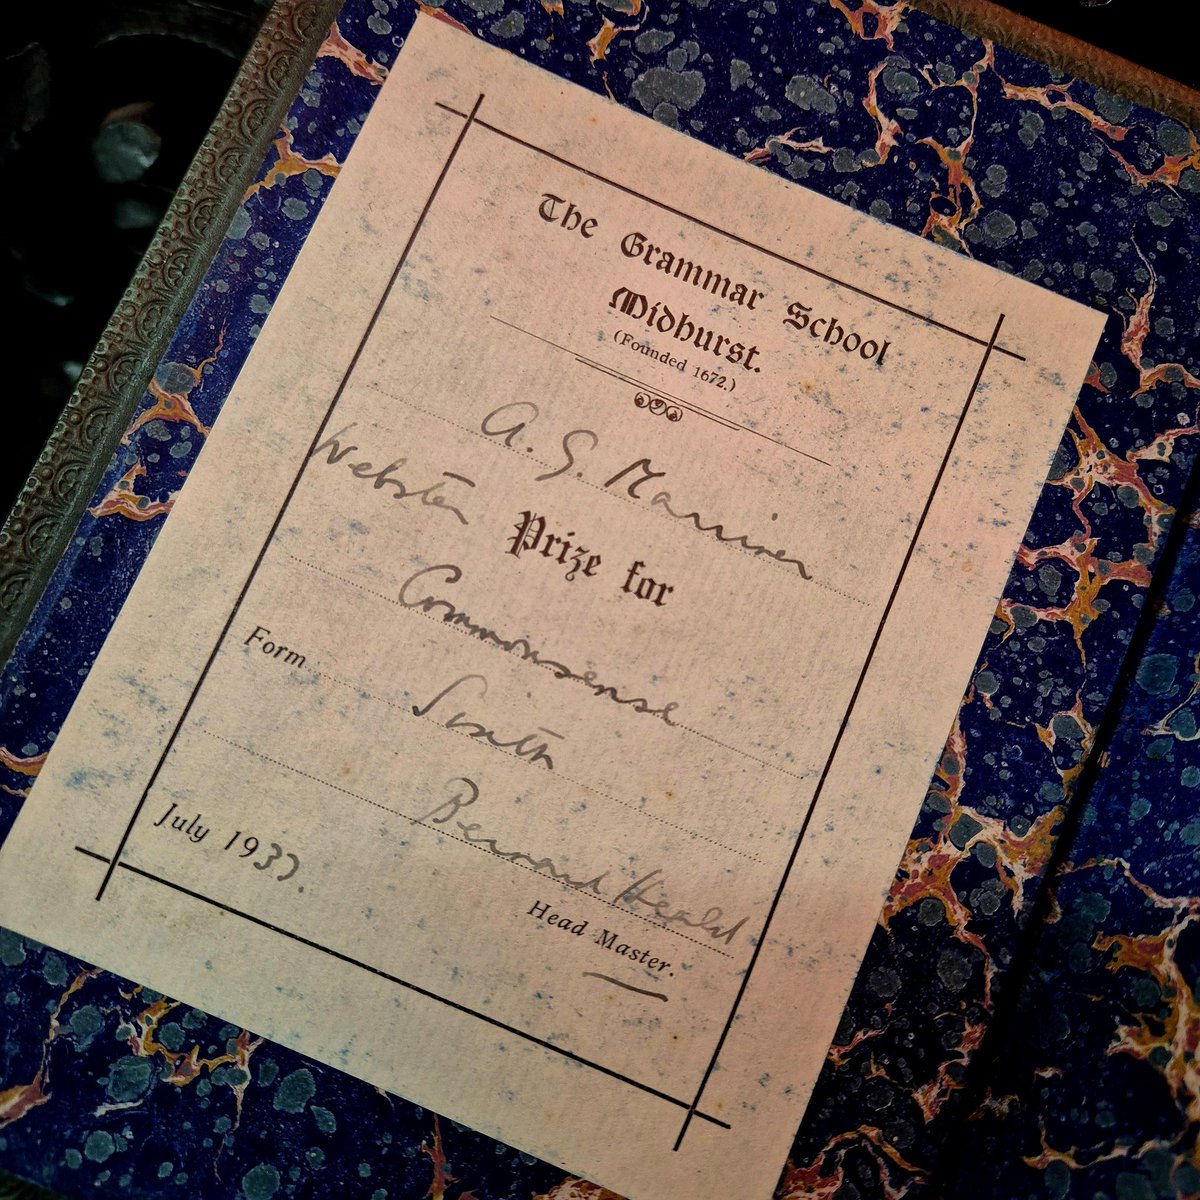 The Grammar School
Midhurst.
(Founded 1672.)
A. G. Marriner
Webster Prize for
Commonsense
Form Sixth
Bernard Heald
Head Master.
July 1937.